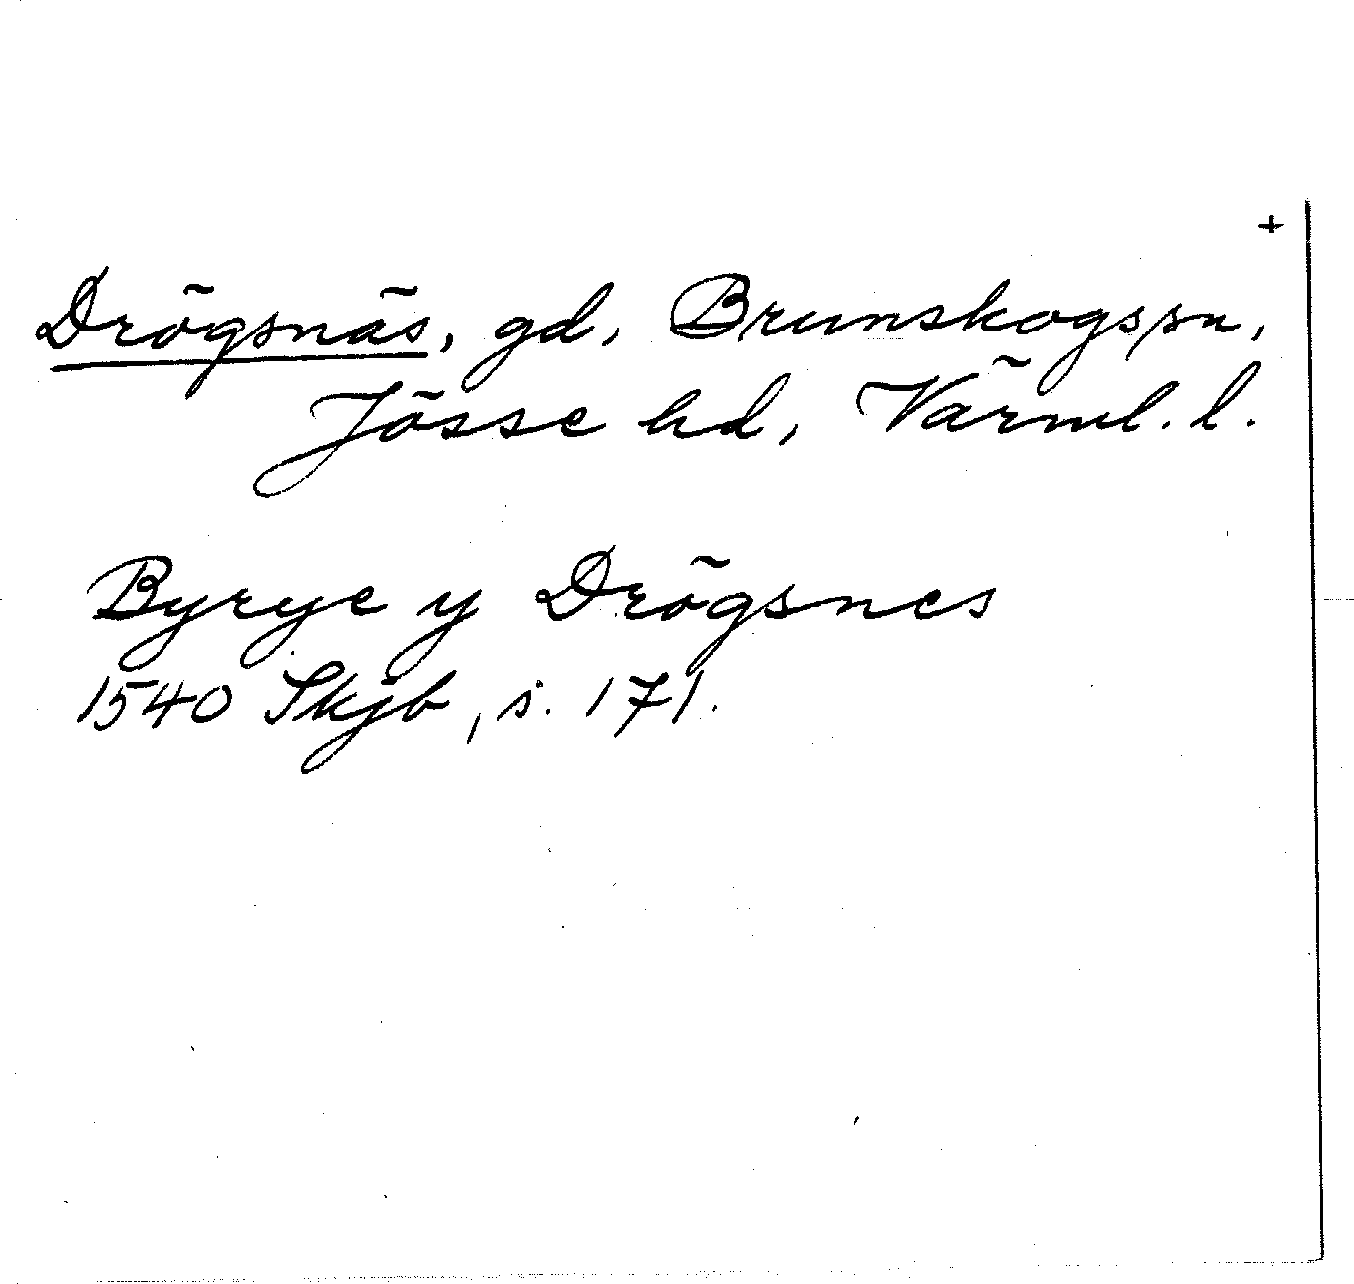 +
Drögsnäs, gd, Brunskogs sn,
Jösse hd, Värml. l.
Byrye y Drögsnes
1540 Skjb, s. 171.